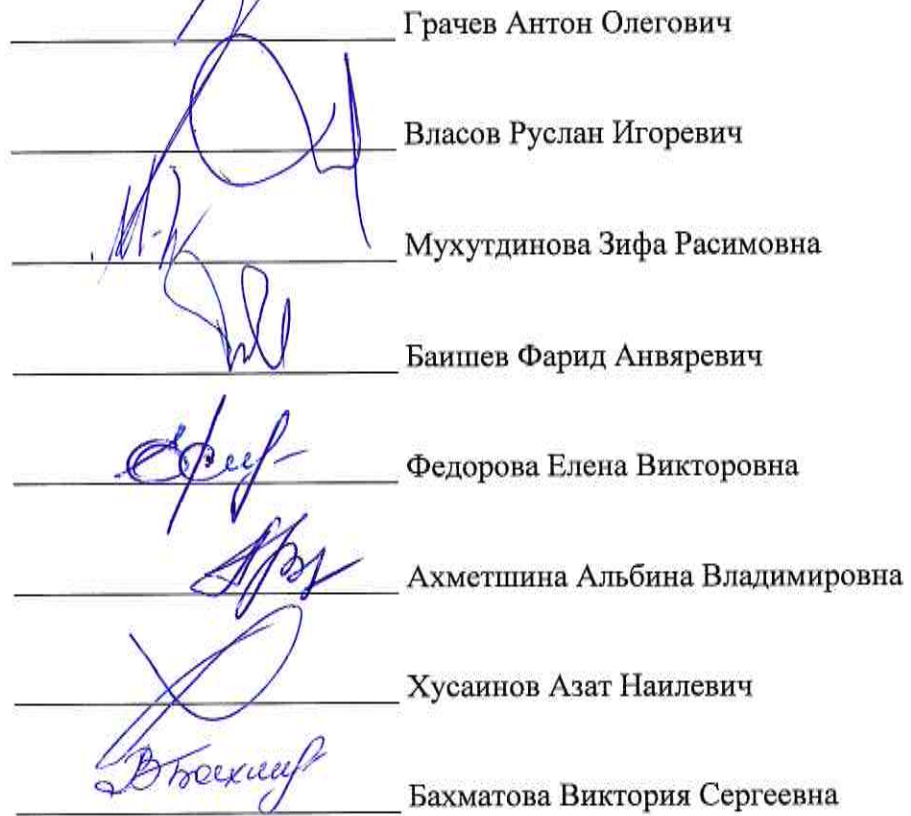 Грачев Антон Олегович
Власов Руслан Игоревич
Мухутдинова Зифа Расимовна
Баишев Фарид Анвяревич
Федорова Елена Викторовна
Ахметшина Альбина Владимировна
Хусаинов Азат Наилевич
Бахматова Виктория Сергеевна